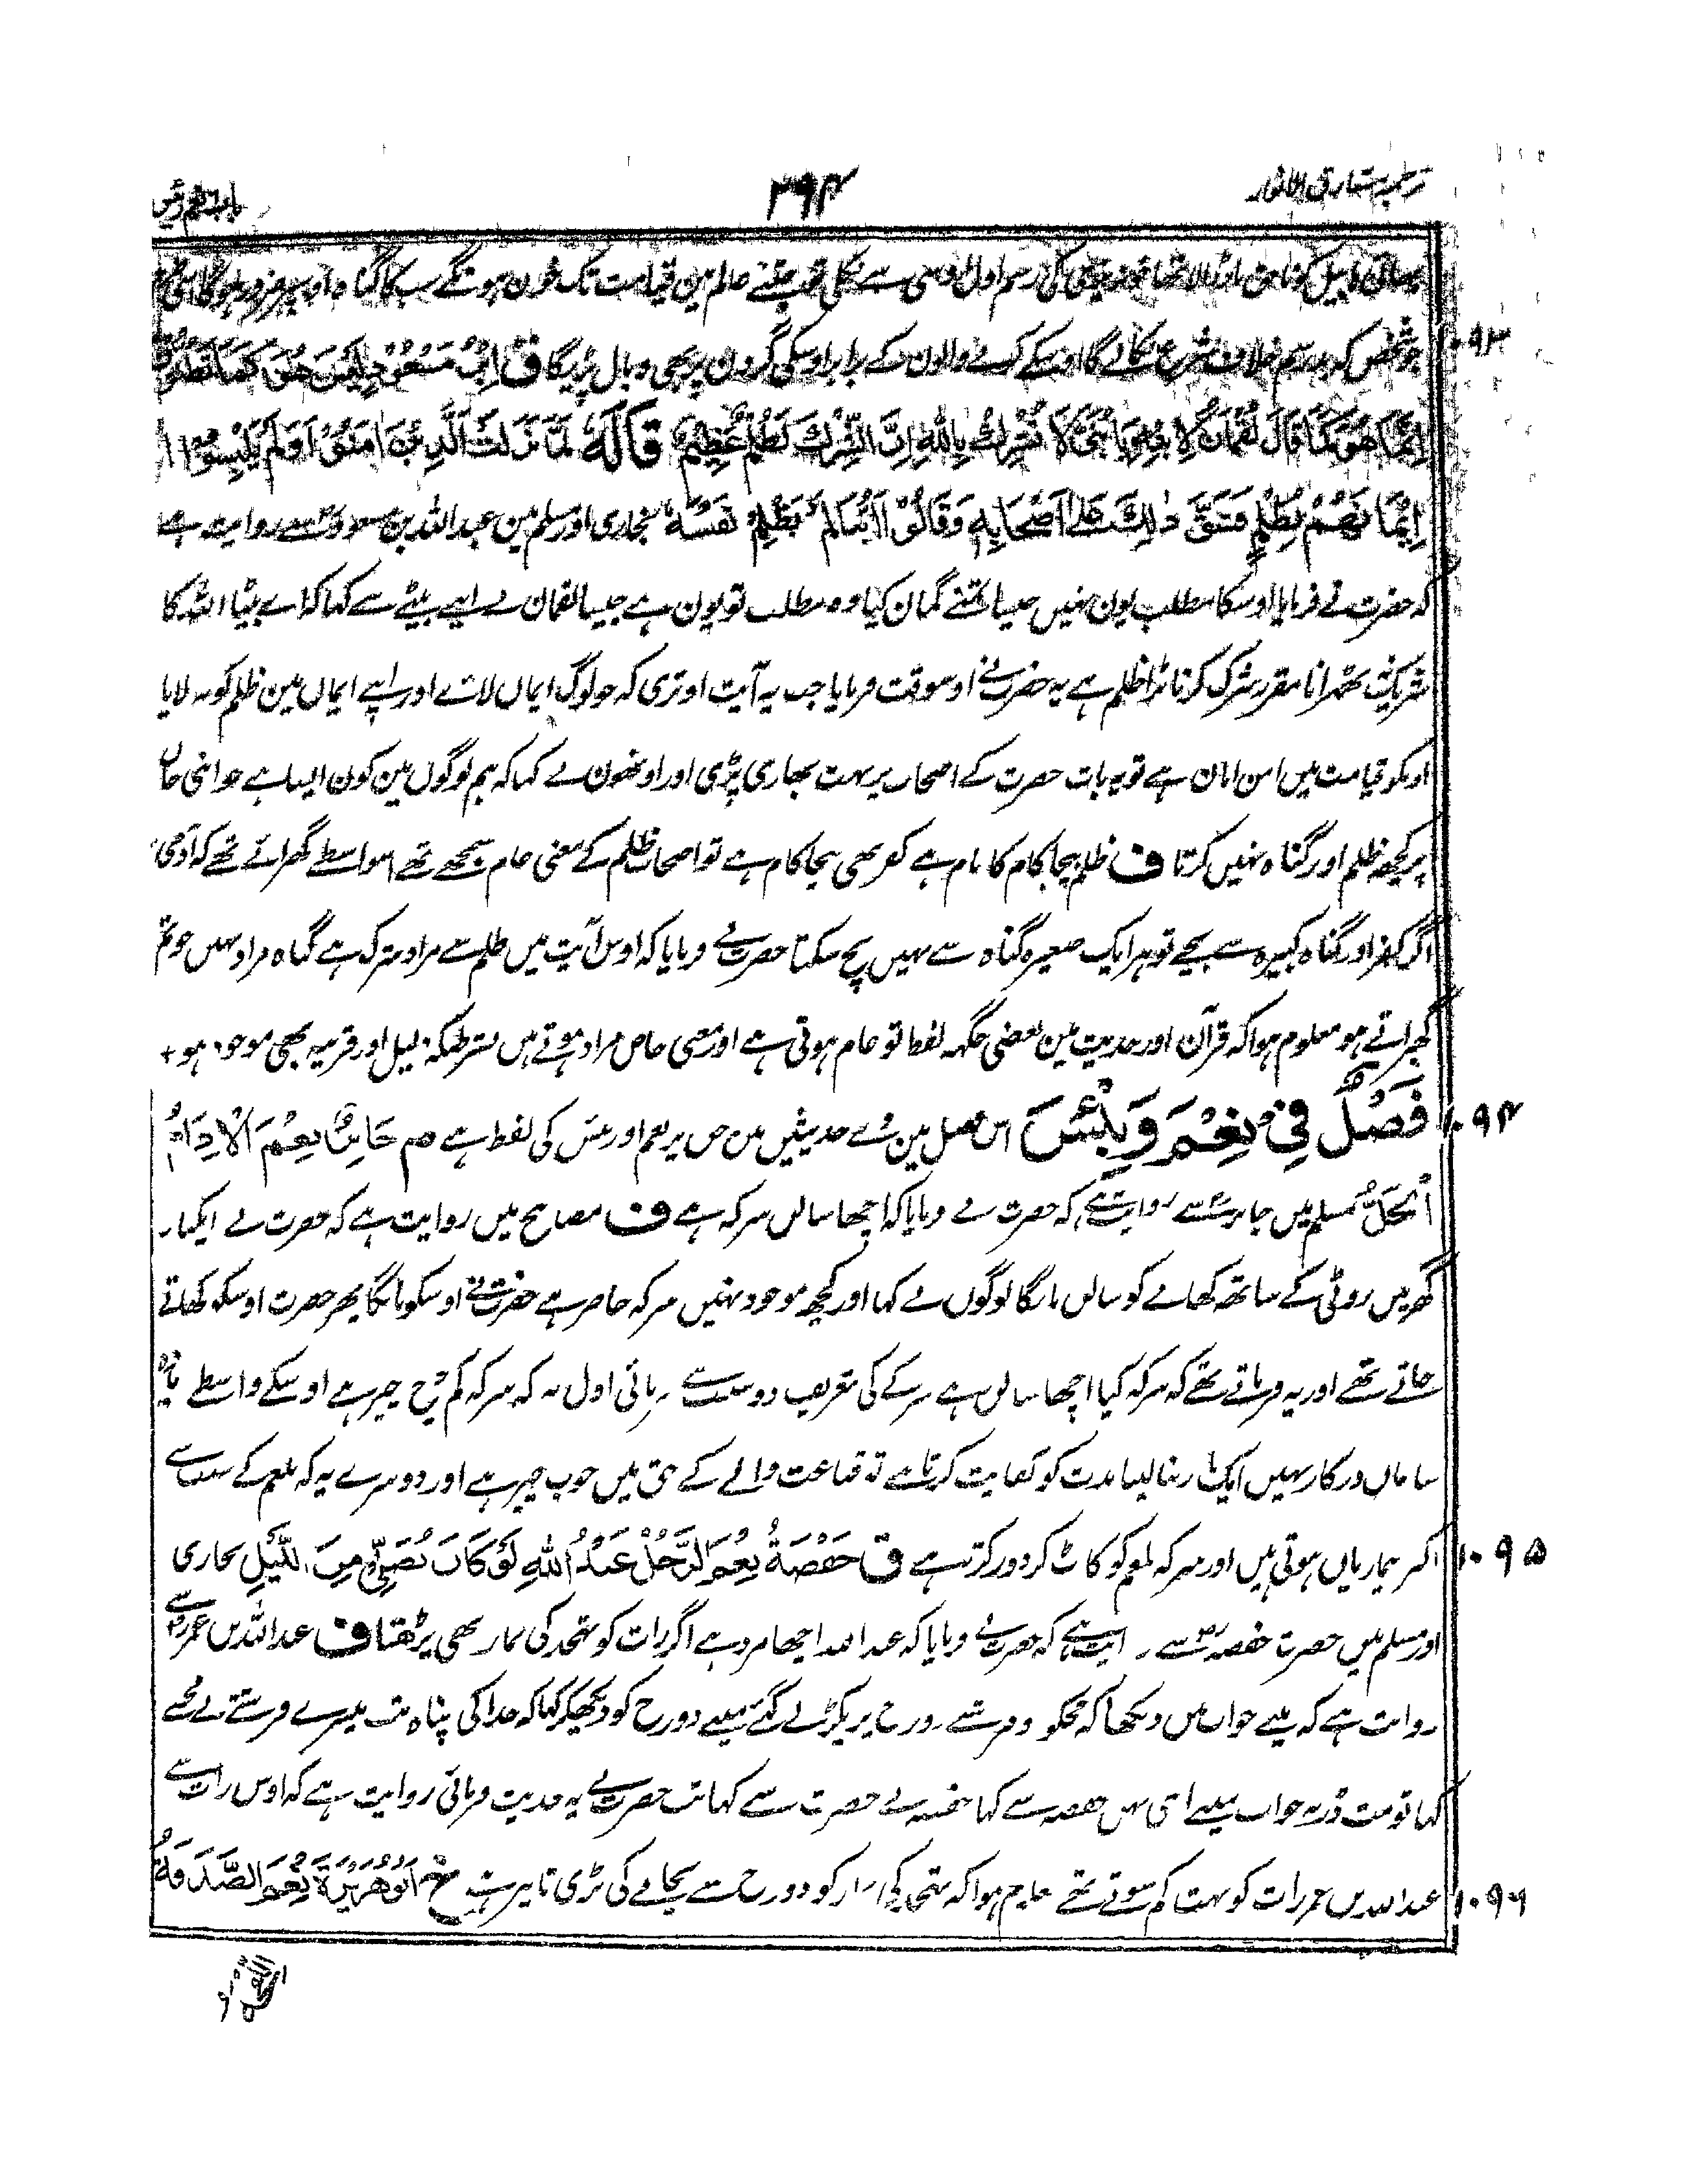 ترجمہ مشارق الانوار
۳۹۴
قابیل کو ناحق مار ڈالا تھا خونریزی کی رسم اول اوسی سے نکلی تو جتنے عالم مین قیامت تک خون ہونگے سب کا گناہ اوسپر ضرور ہوگا
۱۰۹۳
جو شخص کہ بد رسم خلاف شرع نکالے گا اوسکے کرنے والون کے برابر اوسکی گردن پر بھی وبال پڑیگا ق اِبْنُ مَسْعُوْدٍ لَيْسَ هُوَ كَمَا تَظُنُّوْنَ
اِنَّمَا هُوَ كَمَا قَالَ لُقْمَانُ لِابْنِهٖ يَا بُنَيَّ لَا تُشْرِكْ بِاللهِ اِنَّ الشِّرْكَ لَظُلْمٌ عَظِيْمٌ قَالَهٗ لَمَّا نَزَلَتْ اَلَّذِيْنَ اٰمَنُوْا وَلَمْ يَلْبِسُوْا
اِيْمَانَهُمْ بِظُلْمٍ فَشَقَّ ذٰلِكَ عَلٰى اَصْحَابِهٖ وَقَالُوْا اَيُّنَا لَمْ يَظْلِمْ نَفْسَهٗ بخاری اور مسلم مین عبداللہ بن مسعودؓ سے روایت ہے
کہ حضرت نے فرمایا اوسکا مطلب یون نہیں جیسا تمنے گمان کیا وہ مطلب تو یون ہے جیسا لقمان نے اپنے بیٹے سے کہا کہ اے بیٹا اللہ کا
شریک نہ ٹھہرانا مقرر شرک کرنا بڑا ظلم ہے یہ حضرت نے اوسوقت فرمایا جب یہ آیت اوتری کہ جو لوگ ایمان لائے اور اپنے ایمان مین ظلم کو نہ لایا
اونکو قیامت میں امن امان ہے تو یہ بات حضرت کے اصحاب پر بہت بھاری پڑی اور اونھون نے کہا کہ ہم لوگوں مین کون ایسا ہے جو اپنی جان
پر کچھ ظلم اور گناہ نہیں کرتا ف ظلم بیجا کام کا نام ہے کفر بھی بیجا کام ہے تو اصحاب ظلم کے معنی عام سمجھے تھے اسواسطے گھبرائے تھے کہ آدمی
اگر کفر اور گناہ کبیرہ سے بچے تو ہر ایک صغیرہ گناہ سے نہیں بچ سکتا حضرت نے فرمایا کہ اوس آیت میں ظلم سے مراد شرک ہے گناہ مراد نہیں جو تم
گھبراتے ہو معلوم ہوا کہ قرآن اور حدیث مین بعضی جگہہ لفظ تو عام ہوتی ہے اور معنی خاص مراد ہوتے ہیں بشرطیکہ دلیل اور قرینہ بھی موجود ہو +
۱۰۹۴
فَصْلٌ فِيْ نِعْمَ وَبِئْسَ اس فصل مین وے حدیثیں ہیں جن پر نعم اور بئس کی لفظ ہے م جَابِرٌ نِعْمَ الْاِدَامُ
الْخَلُّ مسلم میں جابرؓ سے روایت ہے کہ حضرت نے فرمایا کہ اچھا سالن سرکہ ہے ف مصابیح میں روایت ہے کہ حضرت نے ایکبار
گھر میں روٹی کے ساتھ کھانے کو سالن مانگا لوگوں نے کہا اور کچھ موجود نہیں سرکہ حاضر ہے حضرت نے اوسکو مانگا پھر حضرت اوسکو کھاتے
جاتے تھے اور یہ فرماتے تھے کہ سرکہ کیا اچھا سالن ہے سرکے کی تعریف دو سبب سے فرمائی اول یہ کہ سرکہ کم خرچ چیز ہے اوسکے واسطے
سامان درکار نہیں ایک بار بنا لینا مدت کو کفایت کرتا ہے تو قناعت والے کے حق میں خوب چیز ہے اور دوسرے یہ کہ بلغم کے سبب سے
۱۰۹۵
اکثر بیماریاں ہوتی ہیں اور سرکہ بلغم کو کاٹ کر دور کرتا ہے ق حَفْصَةُ نِعْمَ الرَّجُلُ عَبْدُ اللهِ لَوْ كَانَ يُصَلِّيْ مِنَ اللَّيْلِ بخاری
اور مسلم میں حضرت حفصہؓ سے روایت ہے کہ حضرت نے فرمایا کہ عبداللہ اچھا مرد ہے اگر رات کو تہجد کی نماز بھی پڑھتا ف عبداللہ بن عمرؓ سے
روایت ہے کہ مینے خواب میں دیکھا کہ مجکو دو فرشتے دوزخ پر پکڑ لے گئے مینے دوزخ کو دیکھکر کہا کہ خدا کی پناہ تب تیسرے فرشتے نے مجھسے
کہا تو مت ڈر یہ خواب مینے اپنی بہن حفصہ سے کہا حفصہ نے حضرت سے کہا تب حضرت نے یہ حدیث فرمائی روایت ہے کہ اوس رات سے
۱۰۹۶
عبداللہ بن عمر رات کو بہت کم سوتے تھے معلوم ہوا کہ تہجد کی نماز کو دوزخ سے بچانے کی بڑی تاثیر ہے خ اَبُوْ هُرَيْرَةَ نِعْمَ الصَّدَقَةُ